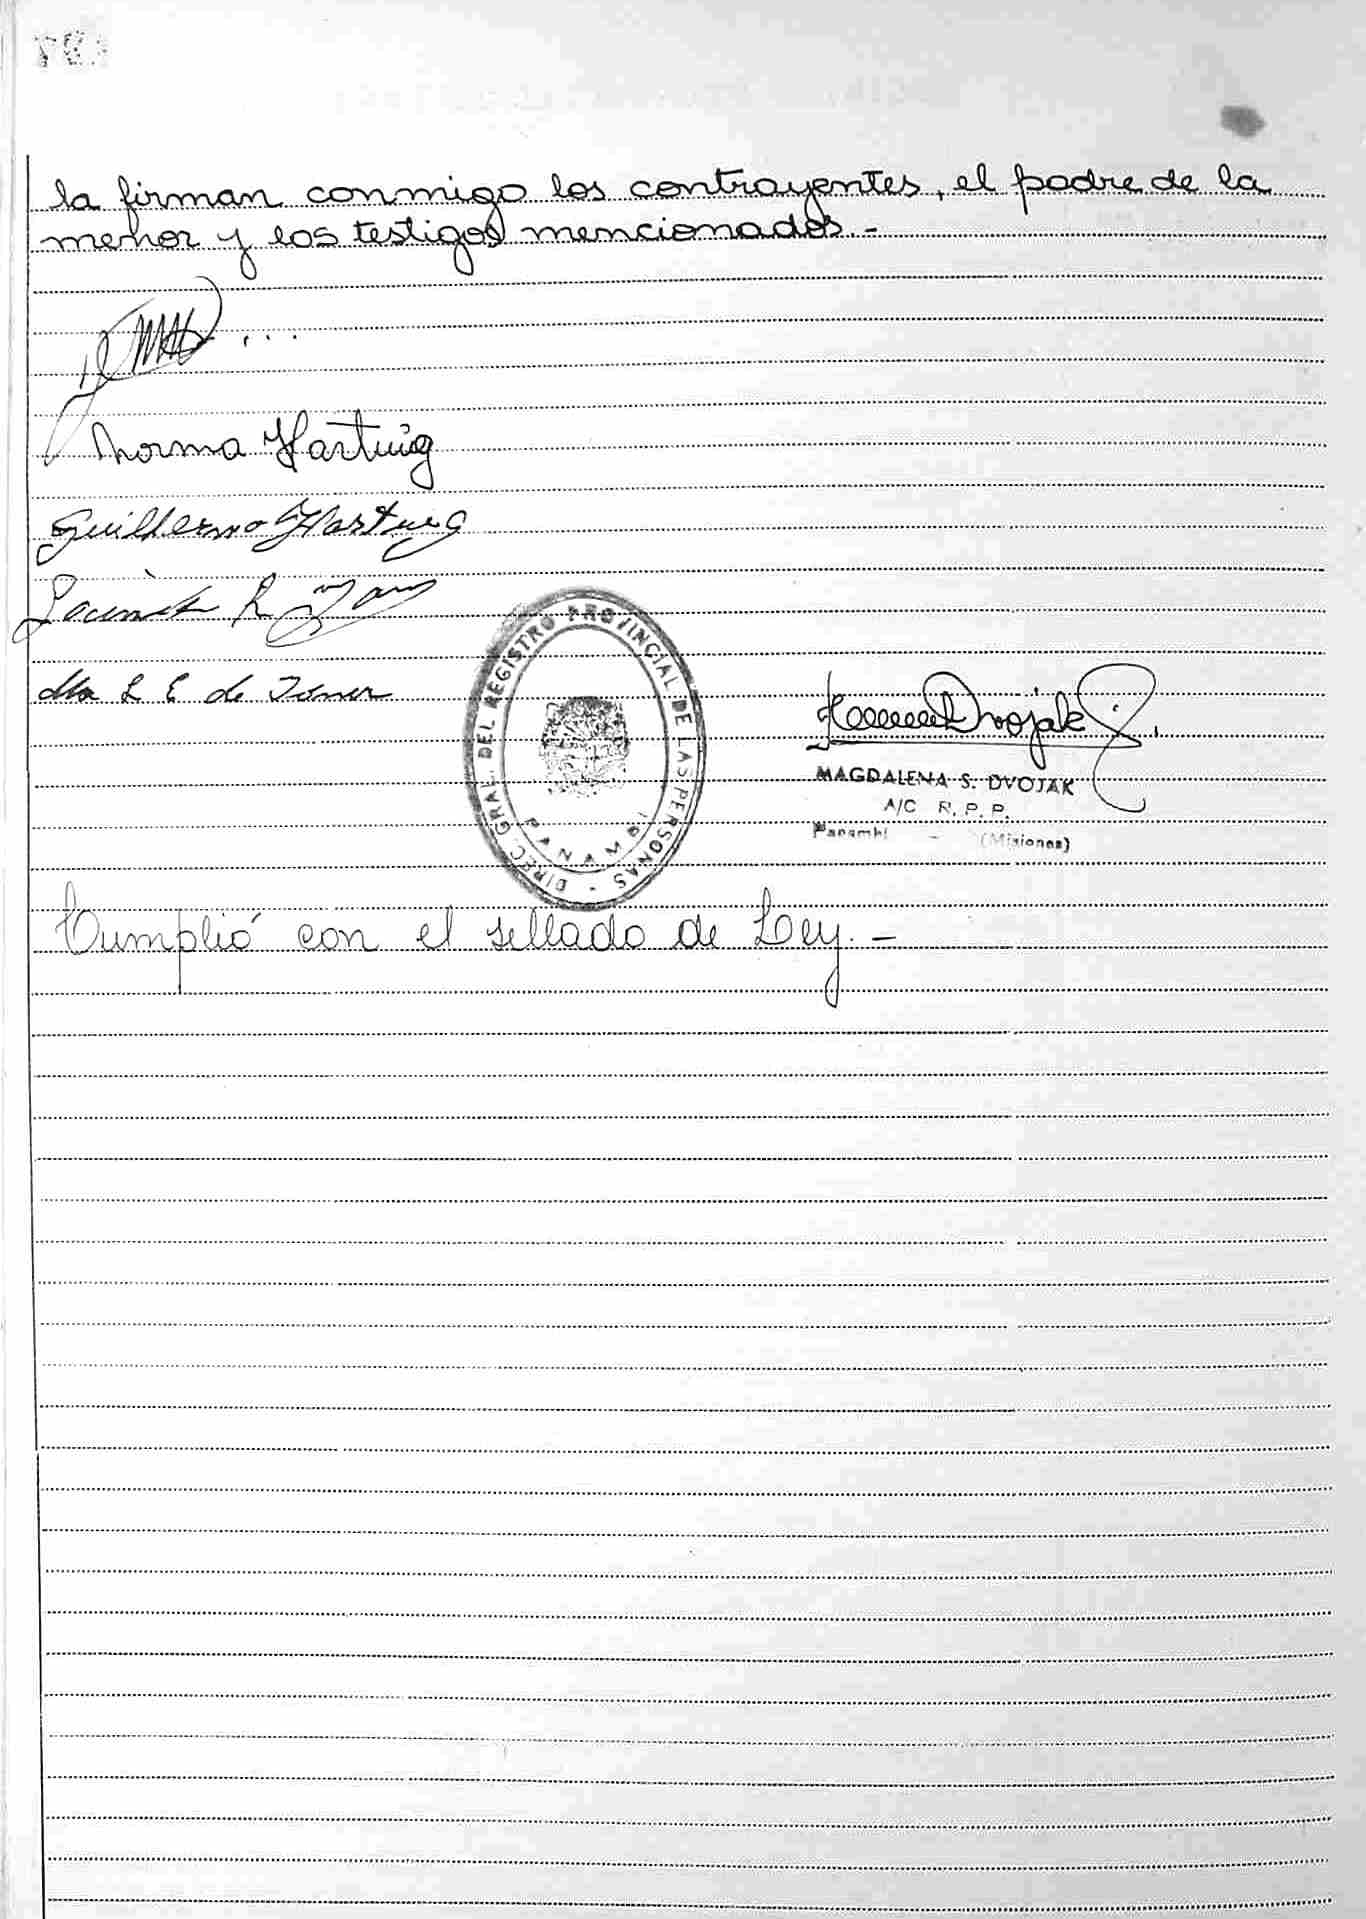 la firman conmigo los contrayentes, el padre de la
menor y los testigos mencionados.-
Norma Hartwig
Guilhermo Hartwig
DIREC. GRAL. DEL REGISTRO PROVINCIAL DE LAS PERSONAS -
PANAMBI
Dvojak
MAGDALENA S. DVOJAK
A/C R. P. P.
Panambi - (Misiones)
Cumplió con el sellado de Ley.-